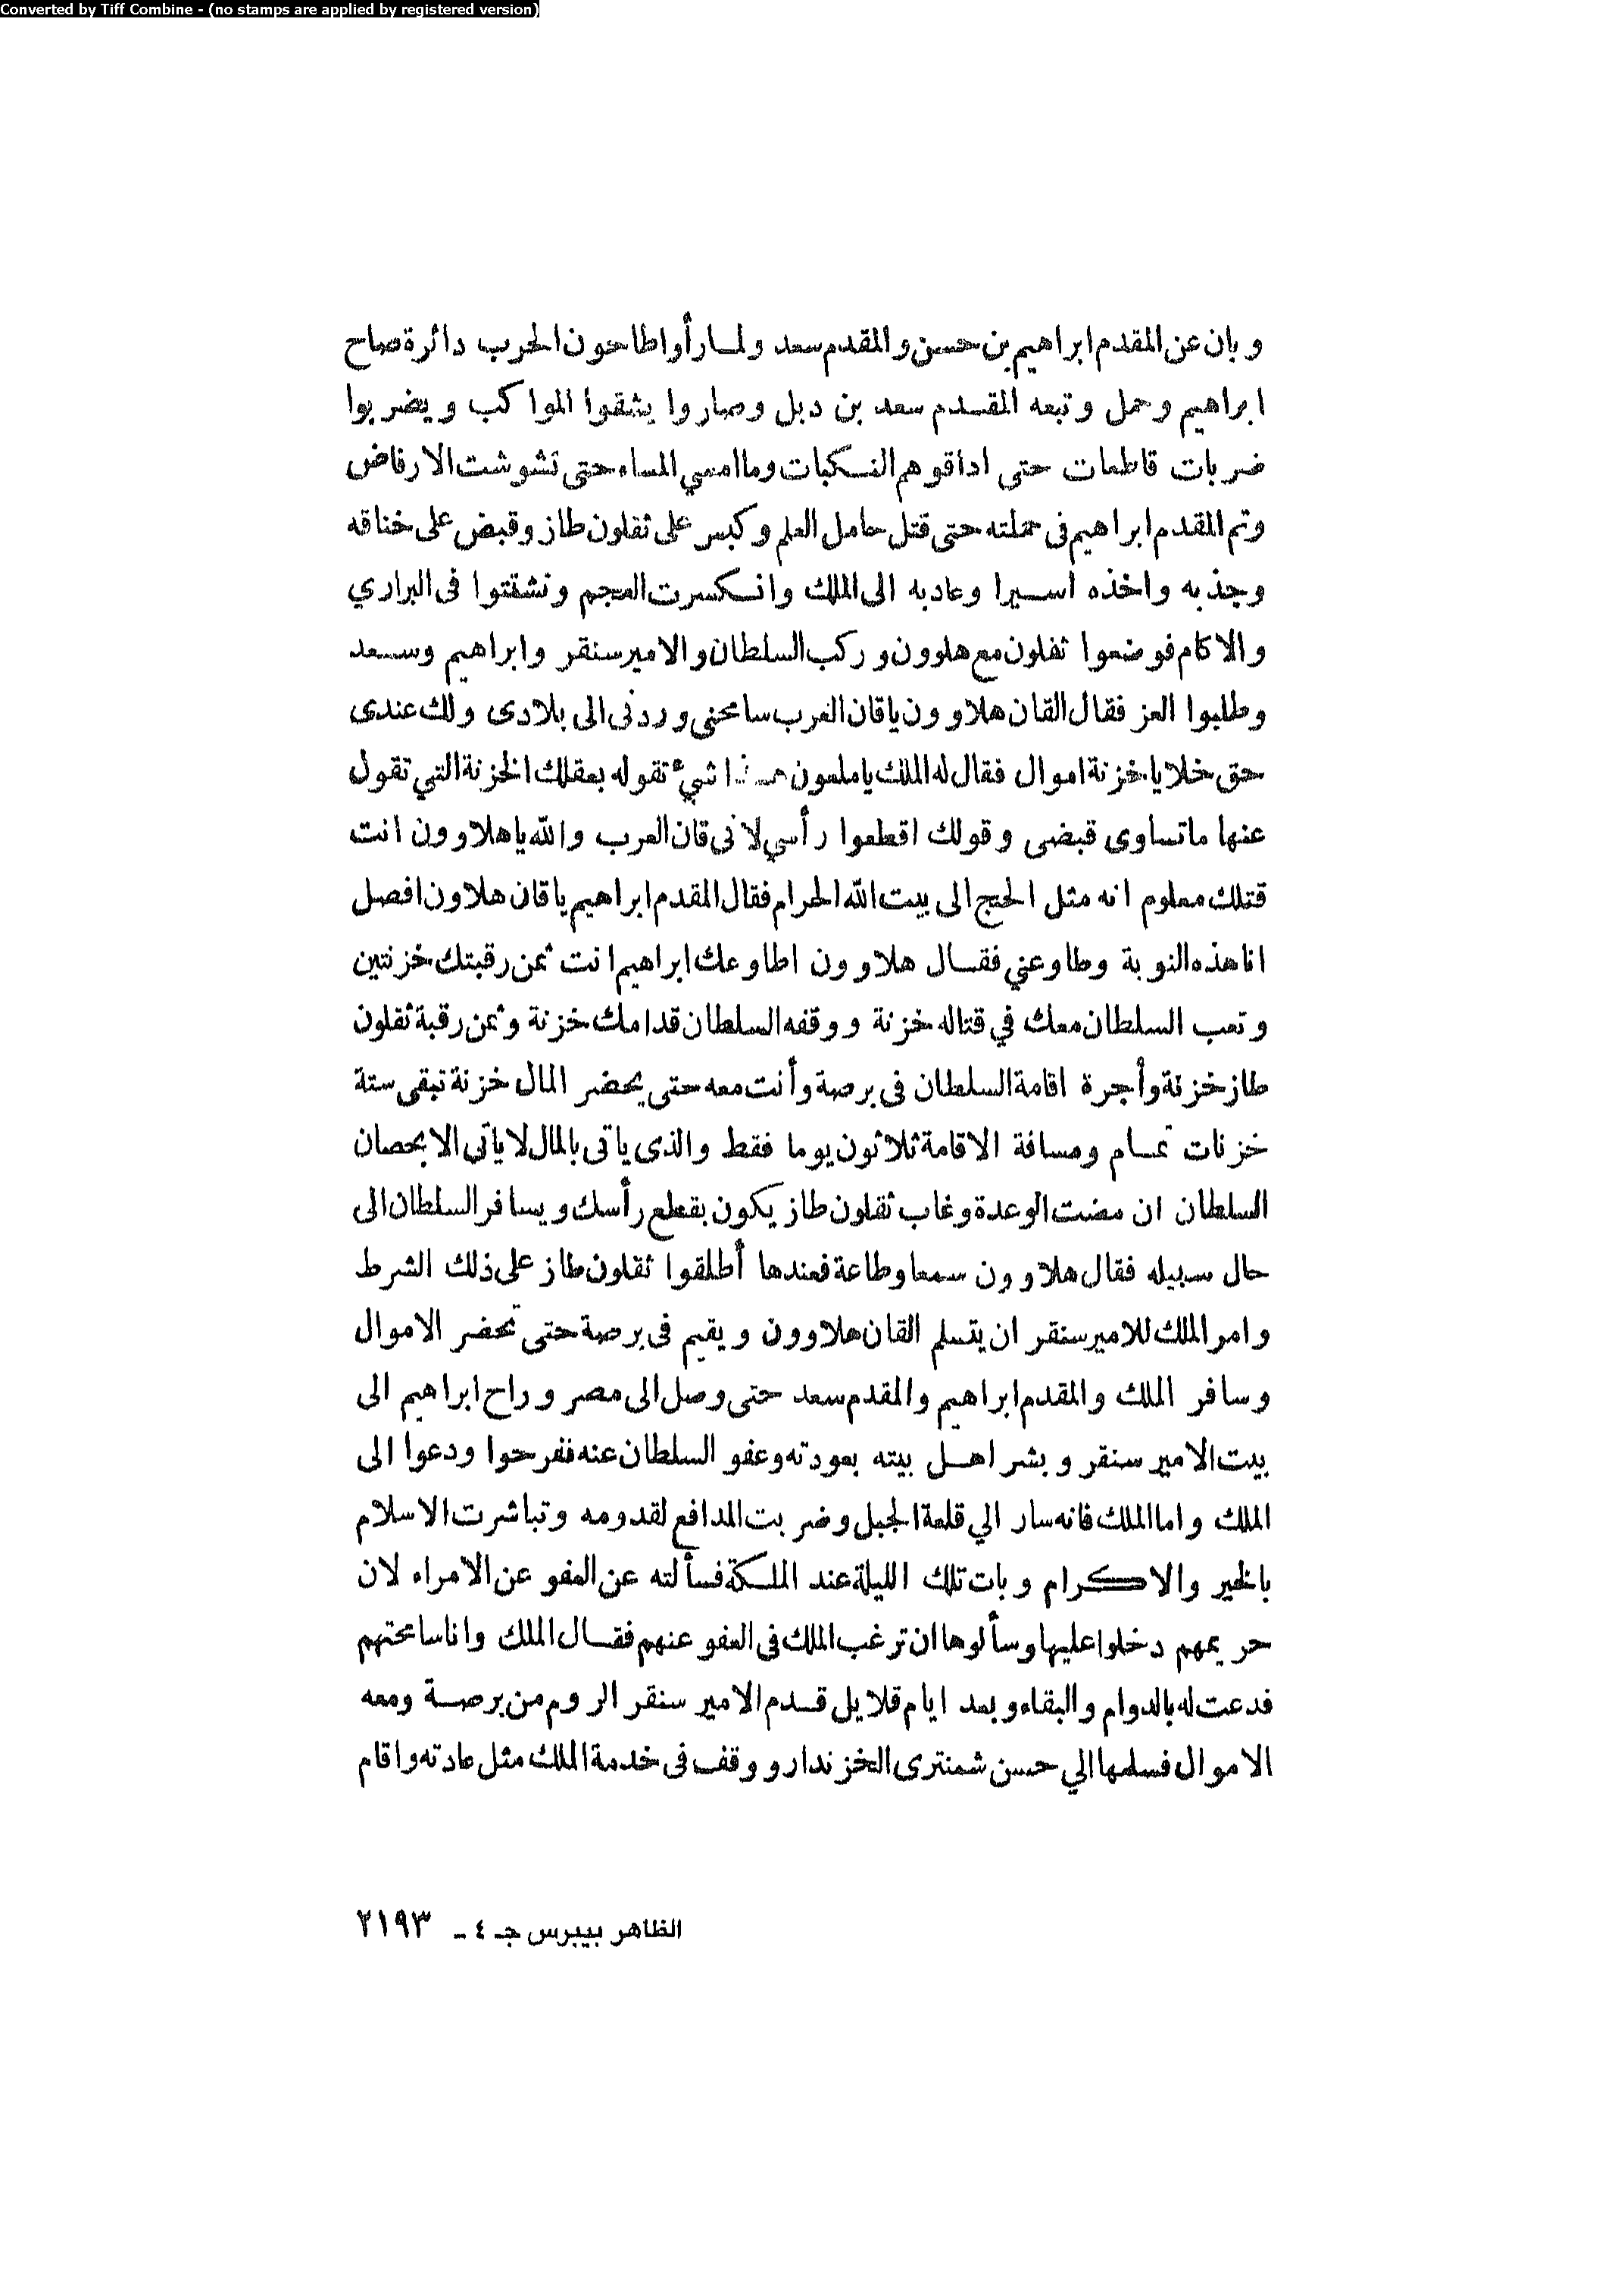 Converted by Tiff Combine - (no stamps are applied by registered version)
وبان عن المقدم ابراهيم بن حسن والمقدم سعد ولما رأوا طاحون الحرب دائرة صاح
ابراهيم وحمل وتبعه المقدم سعد بن دبل وصاروا يشقوا المواكب ويضربوا
ضربات قاطعات حتى اداقوهم النكبات وما امسي المساء حتى تشوشت الارفاض
وتم المقدم ابراهيم فى حملته حتى قتل حامل العلم وكبس على ثقلون طاز وقبض على خناقه
وجذبه واخذه اسيرا وعاد به الى الملك وانكسرت العجم وتشتتوا فى البراري
والاكام فوضعوا ثقلون مع هلوون وركب السلطان والامير سنقر وابراهيم وسعد
وطلبوا العز فقال القان هلاوون ياقان العرب سامحنى وردنى الى بلادى ولك عندى
حق خلايا خزنة اموال فقال له الملك ياملعون هذا شيء تقوله بعقلك الخزنة التي تقول
عنها ماتساوى قبضى وقولك اقطعوا رأسي لانى قان العرب والله ياهلاوون انت
قتلك معلوم انه مثل الحج الى بيت الله الحرام فقال المقدم ابراهيم ياقان هلاون افصل
انا هذه النوبة وطاوعني فقال هلاوون اطاوعك ابراهيم انت ثمن رقبتك خزنتين
وتعب السلطان معك في قتاله خزنة ووقفه السلطان قدامك خزنة وثمن رقبة ثقلون
طاز خزنة وأجرة اقامة السلطان فى برصة وأنت معه حتى يحضر المال خزنة تبقى ستة
خزنات تمام ومسافة الاقامة ثلاثون يوما فقط والذى ياتى بالمال لا يأتى الا بحصان
السلطان ان مضت الوعدة وغاب ثقلون طاز يكون بقطع رأسك ويسافر السلطان الى
حال سبيله فقال هلاوون سمعا وطاعة فعندها أطلقوا ثقلون طاز على ذلك الشرط
وامر الملك للامير سنقر ان يتسلم القان هلاوون ويقيم فى برصة حتى تحضر الاموال
وسافر الملك والمقدم ابراهيم والمقدم سعد حتى وصل الى مصر وراح ابراهيم الى
بيت الامير سنقر وبشر اهل بيته بعودته وعفو السلطان عنه ففرحوا ودعوا الى
الملك واما الملك فانه سار الي قلعة الجبل وضربت المدافع لقدومه وتباشرت الاسلام
بالخير والاكرام وبات تلك الليلة عند الملكة فسألته عن العفو عن الامراء لان
حريمهم دخلوا عليها وسألوها ان ترغب الملك فى العفو عنهم فقال الملك وانا سامحتهم
فدعت له بالدوام والبقاء وبعد ايام قلايل قدم الامير سنقر الروم من برصة ومعه
الاموال فسلمها الي حسن شمنترى الخزندار ووقف فى خدمة الملك مثل عادته واقام
الظاهر بيبرس جـ ٤ ـ ٢١٩٣